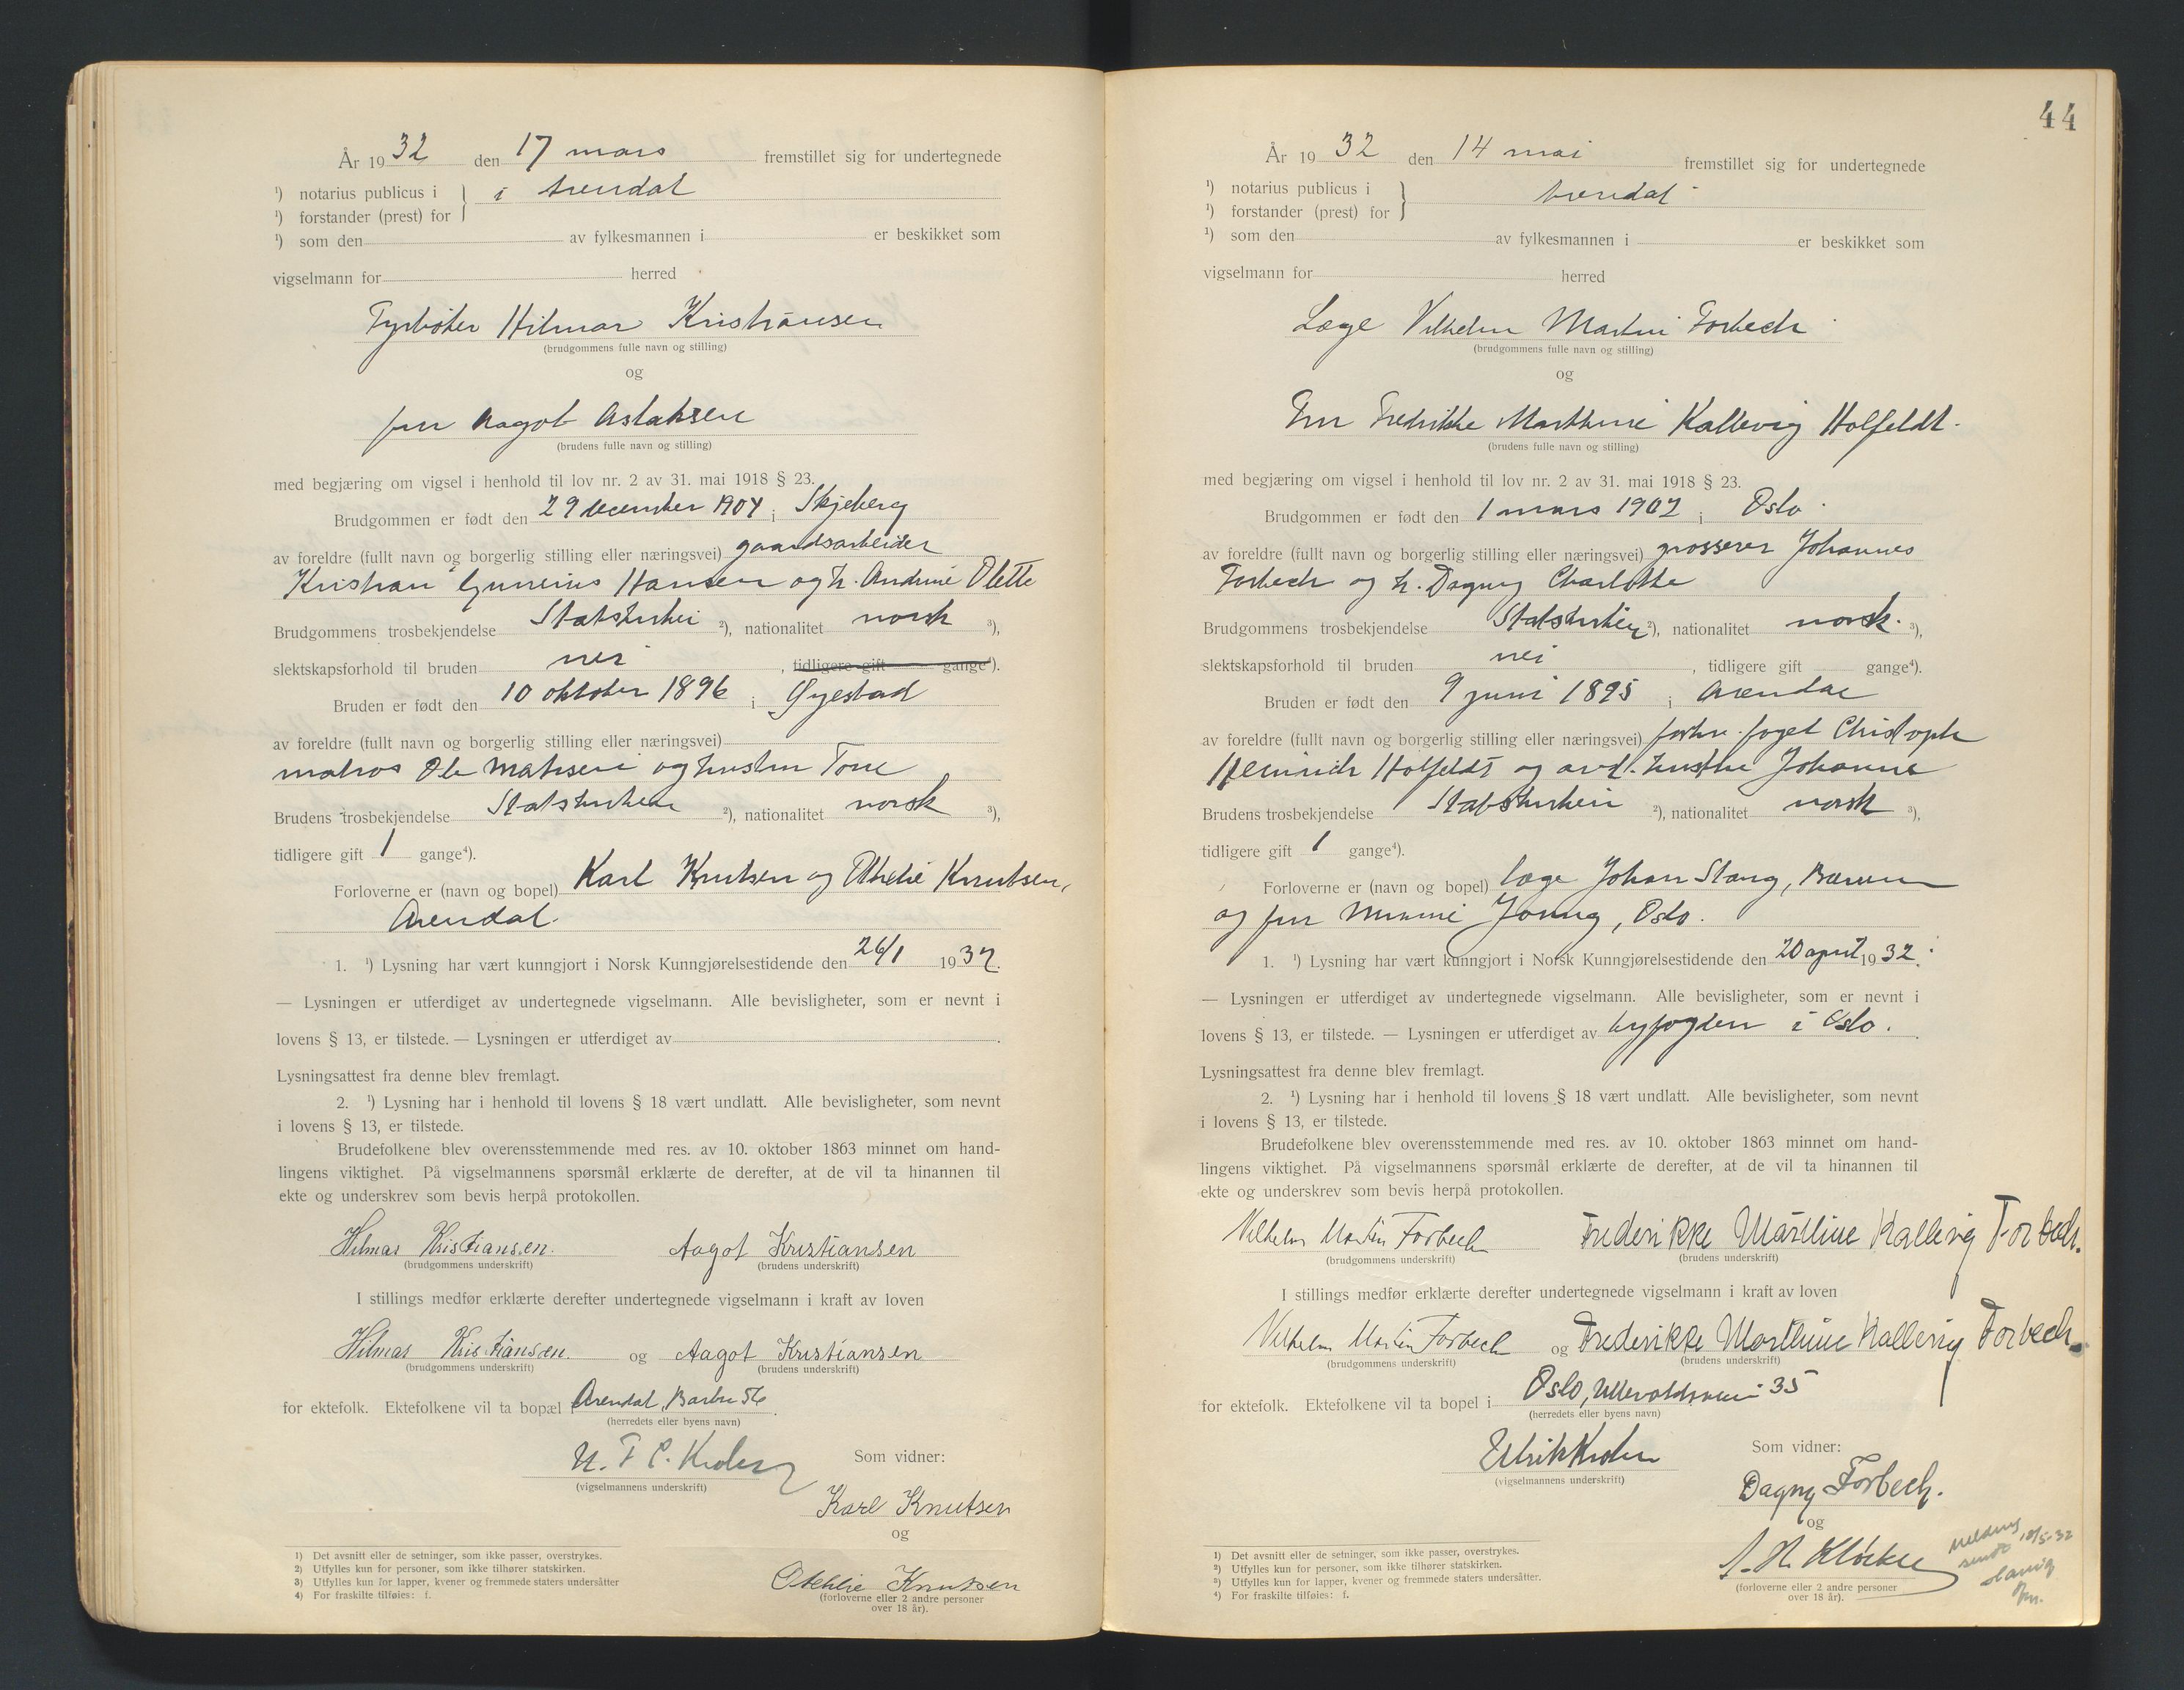 År 1932 den 17 mars fremstillet sig for undertegnede
¹) notarius publicus i
i Arendal
¹) forstander (prest) for
¹) som den av fylkesmannen i er beskikket som
vigselmann for herred
Fyrbøter Hilmar Kristiansen
(brudgommens fulle navn og stilling)
og
fru Aagot Aslaksen
(brudens fulle navn og stilling)
med begjæring om vigsel i henhold til lov nr. 2 av 31. mai 1918 § 23.
Brudgommen er født den 29 december 1904 i Skjeberg
av foreldre (fullt navn og borgerlig stilling eller næringsvei) gaardsarbeider
Kristian Gunerius Hansen og h. Andrine Olette
Brudgommens trosbekjendelse Statskirken ²), nationalitet norsk ³),
slektskapsforhold til bruden nei , tidligere gift gange⁴).
Bruden er født den 10 oktober 1896 i Øyestad
av foreldre (fullt navn og borgerlig stilling eller næringsvei)
matros Ole Mathisen og hustru Tone
Brudens trosbekjendelse Statskirken ²), nationalitet norsk ³),
tidligere gift 1 gange⁴).
Forloverne er (navn og bopel) Karl Knutsen og Othelie Knutsen,
Arendal.
1. ¹) Lysning har vært kunngjort i Norsk Kunngjørelsestidende den 26/1 1932.
— Lysningen er utferdiget av undertegnede vigselmann. Alle bevisligheter, som er nevnt i
lovens § 13, er tilstede. — Lysningen er utferdiget av .
Lysningsattest fra denne blev fremlagt.
2. ¹) Lysning har i henhold til lovens § 18 vært undlatt. Alle bevisligheter, som nevnt
i lovens § 13, er tilstede.
Brudefolkene blev overensstemmende med res. av 10. oktober 1863 minnet om hand-
lingens viktighet. På vigselmannens spørsmål erklærte de derefter, at de vil ta hinannen til
ekte og underskrev som bevis herpå protokollen.
Hilmar Kristiansen. Aagot Kristiansen
(brudgommens underskrift) (brudens underskrift)
I stillings medfør erklærte derefter undertegnede vigselmann i kraft av loven
Hilmar Kristiansen. og Aagot Kristiansen
(brudgommens underskrift) (brudens underskrift)
for ektefolk. Ektefolkene vil ta bopæl i Arendal, Barbu 56.
(herredets eller byens navn)
Som vidner:
U. F. C. Krohn
(vigselmannens underskrift)
Karl Knutsen
og
Othelie Knutsen
(forloverne eller 2 andre personer
over 18 år).
1) Det avsnitt eller de setninger, som ikke passer, overstrykes.
2) Utfylles kun for personer, som ikke tilhører statskirken.
3) Utfylles kun for lapper, kvener og fremmede staters undersåtter
4) For fraskilte tilføies: f.
44
År 1932 den 14 mai fremstillet sig for undertegnede
¹) notarius publicus i
Arendal
¹) forstander (prest) for
¹) som den av fylkesmannen i er beskikket som
vigselmann for herred
Læge Vilhelm Martin Forbech
(brudgommens fulle navn og stilling)
og
Fru Fredrikke Marthine Kallevig Holfeldt.
(brudens fulle navn og stilling)
med begjæring om vigsel i henhold til lov nr. 2 av 31. mai 1918 § 23.
Brudgommen er født den 1 mars 1902 i Oslo
av foreldre (fullt navn og borgerlig stilling eller næringsvei) grosserer Johannes
Forbech og h. Dagny Charlotte
Brudgommens trosbekjendelse Statskirken ²), nationalitet norsk. ³),
slektskapsforhold til bruden nei , tidligere gift gange⁴).
Bruden er født den 9 juni 1895 i Arendal
av foreldre (fullt navn og borgerlig stilling eller næringsvei) forhv. foged Christoph
Heinrich Holfeldt og avd. hustru Johanne
Brudens trosbekjendelse Statskirken ²), nationalitet norsk ³),
tidligere gift 1 gange⁴).
Forloverne er (navn og bopel) læge Johan Stang, Bærum
og fru Mimmi Young, Oslo.
1. ¹) Lysning har vært kunngjort i Norsk Kunngjørelsestidende den 20 april 1932.
— Lysningen er utferdiget av undertegnede vigselmann. Alle bevisligheter, som er nevnt i
lovens § 13, er tilstede. — Lysningen er utferdiget av byfogden i Oslo.
Lysningsattest fra denne blev fremlagt.
2. ¹) Lysning har i henhold til lovens § 18 vært undlatt. Alle bevisligheter, som nevnt
i lovens § 13, er tilstede.
Brudefolkene blev overensstemmende med res. av 10. oktober 1863 minnet om hand-
lingens viktighet. På vigselmannens spørsmål erklærte de derefter, at de vil ta hinannen til
ekte og underskrev som bevis herpå protokollen.
Vilhelm Martin Forbech Frederikke Marthine Kallevig Forbech.
(brudgommens underskrift) (brudens underskrift)
I stillings medfør erklærte derefter undertegnede vigselmann i kraft av loven
Vilhelm Martin Forbech og Frederikke Marthine Kallevig Forbech.
(brudgommens underskrift) (brudens underskrift)
for ektefolk. Ektefolkene vil ta bopel i Oslo, Ullevoldsveien 35
(herredets eller byens navn)
Som vidner:
Ulrik Krohn
(vigselmannens underskrift)
Dagny Forbech.
og
Kløcker
(forloverne eller 2 andre personer
over 18 år).
melding
sendt 18/5-32
1) Det avsnitt eller de setninger, som ikke passer, overstrykes.
2) Utfylles kun for personer, som ikke tilhører statskirken.
3) Utfylles kun for lapper, kvener og fremmede staters undersåtter.
4) For fraskilte tilføies: f.